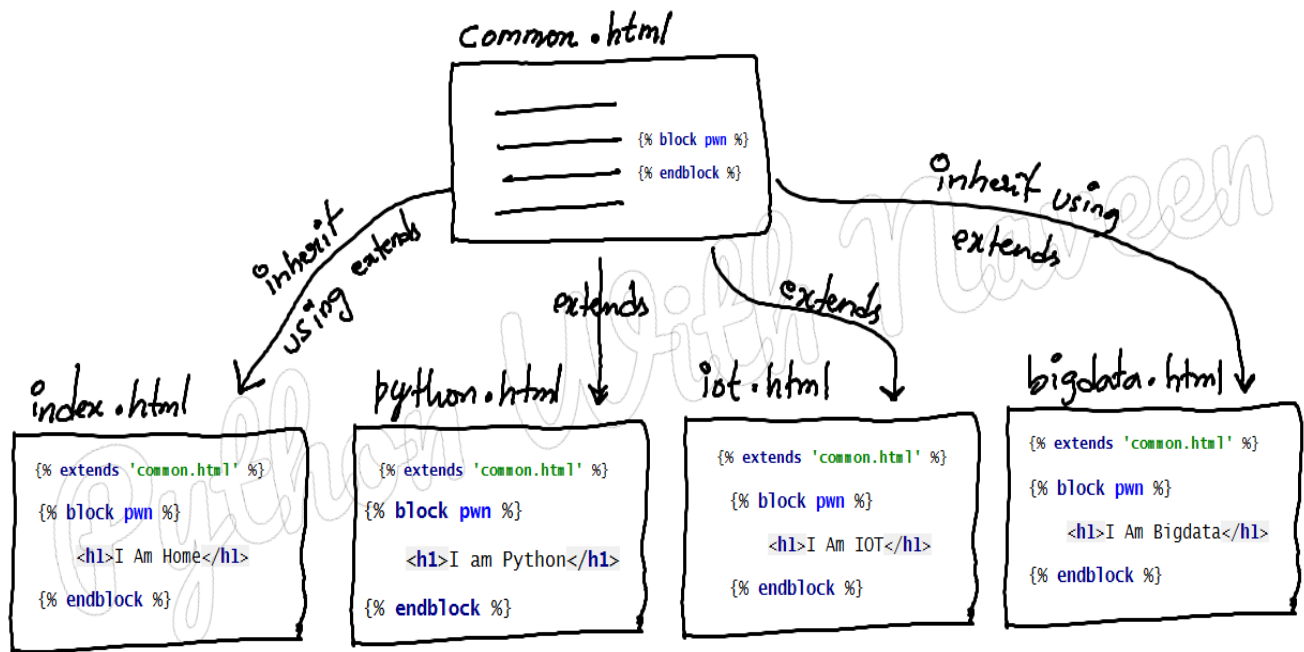 common.html
{% block pwn %}
{% endblock %}
inherit
using extends
extends
extends
inherit using
extends
index.html
{% extends 'common.html' %}
{% block pwn %}
<h1>I Am Home</h1>
{% endblock %}
python.html
{% extends 'common.html' %}
{% block pwn %}
<h1>I am Python</h1>
{% endblock %}
iot.html
{% extends 'common.html' %}
{% block pwn %}
<h1>I Am IOT</h1>
{% endblock %}
bigdata.html
{% extends 'common.html' %}
{% block pwn %}
<h1>I Am Bigdata</h1>
{% endblock %}
Python With Naveen